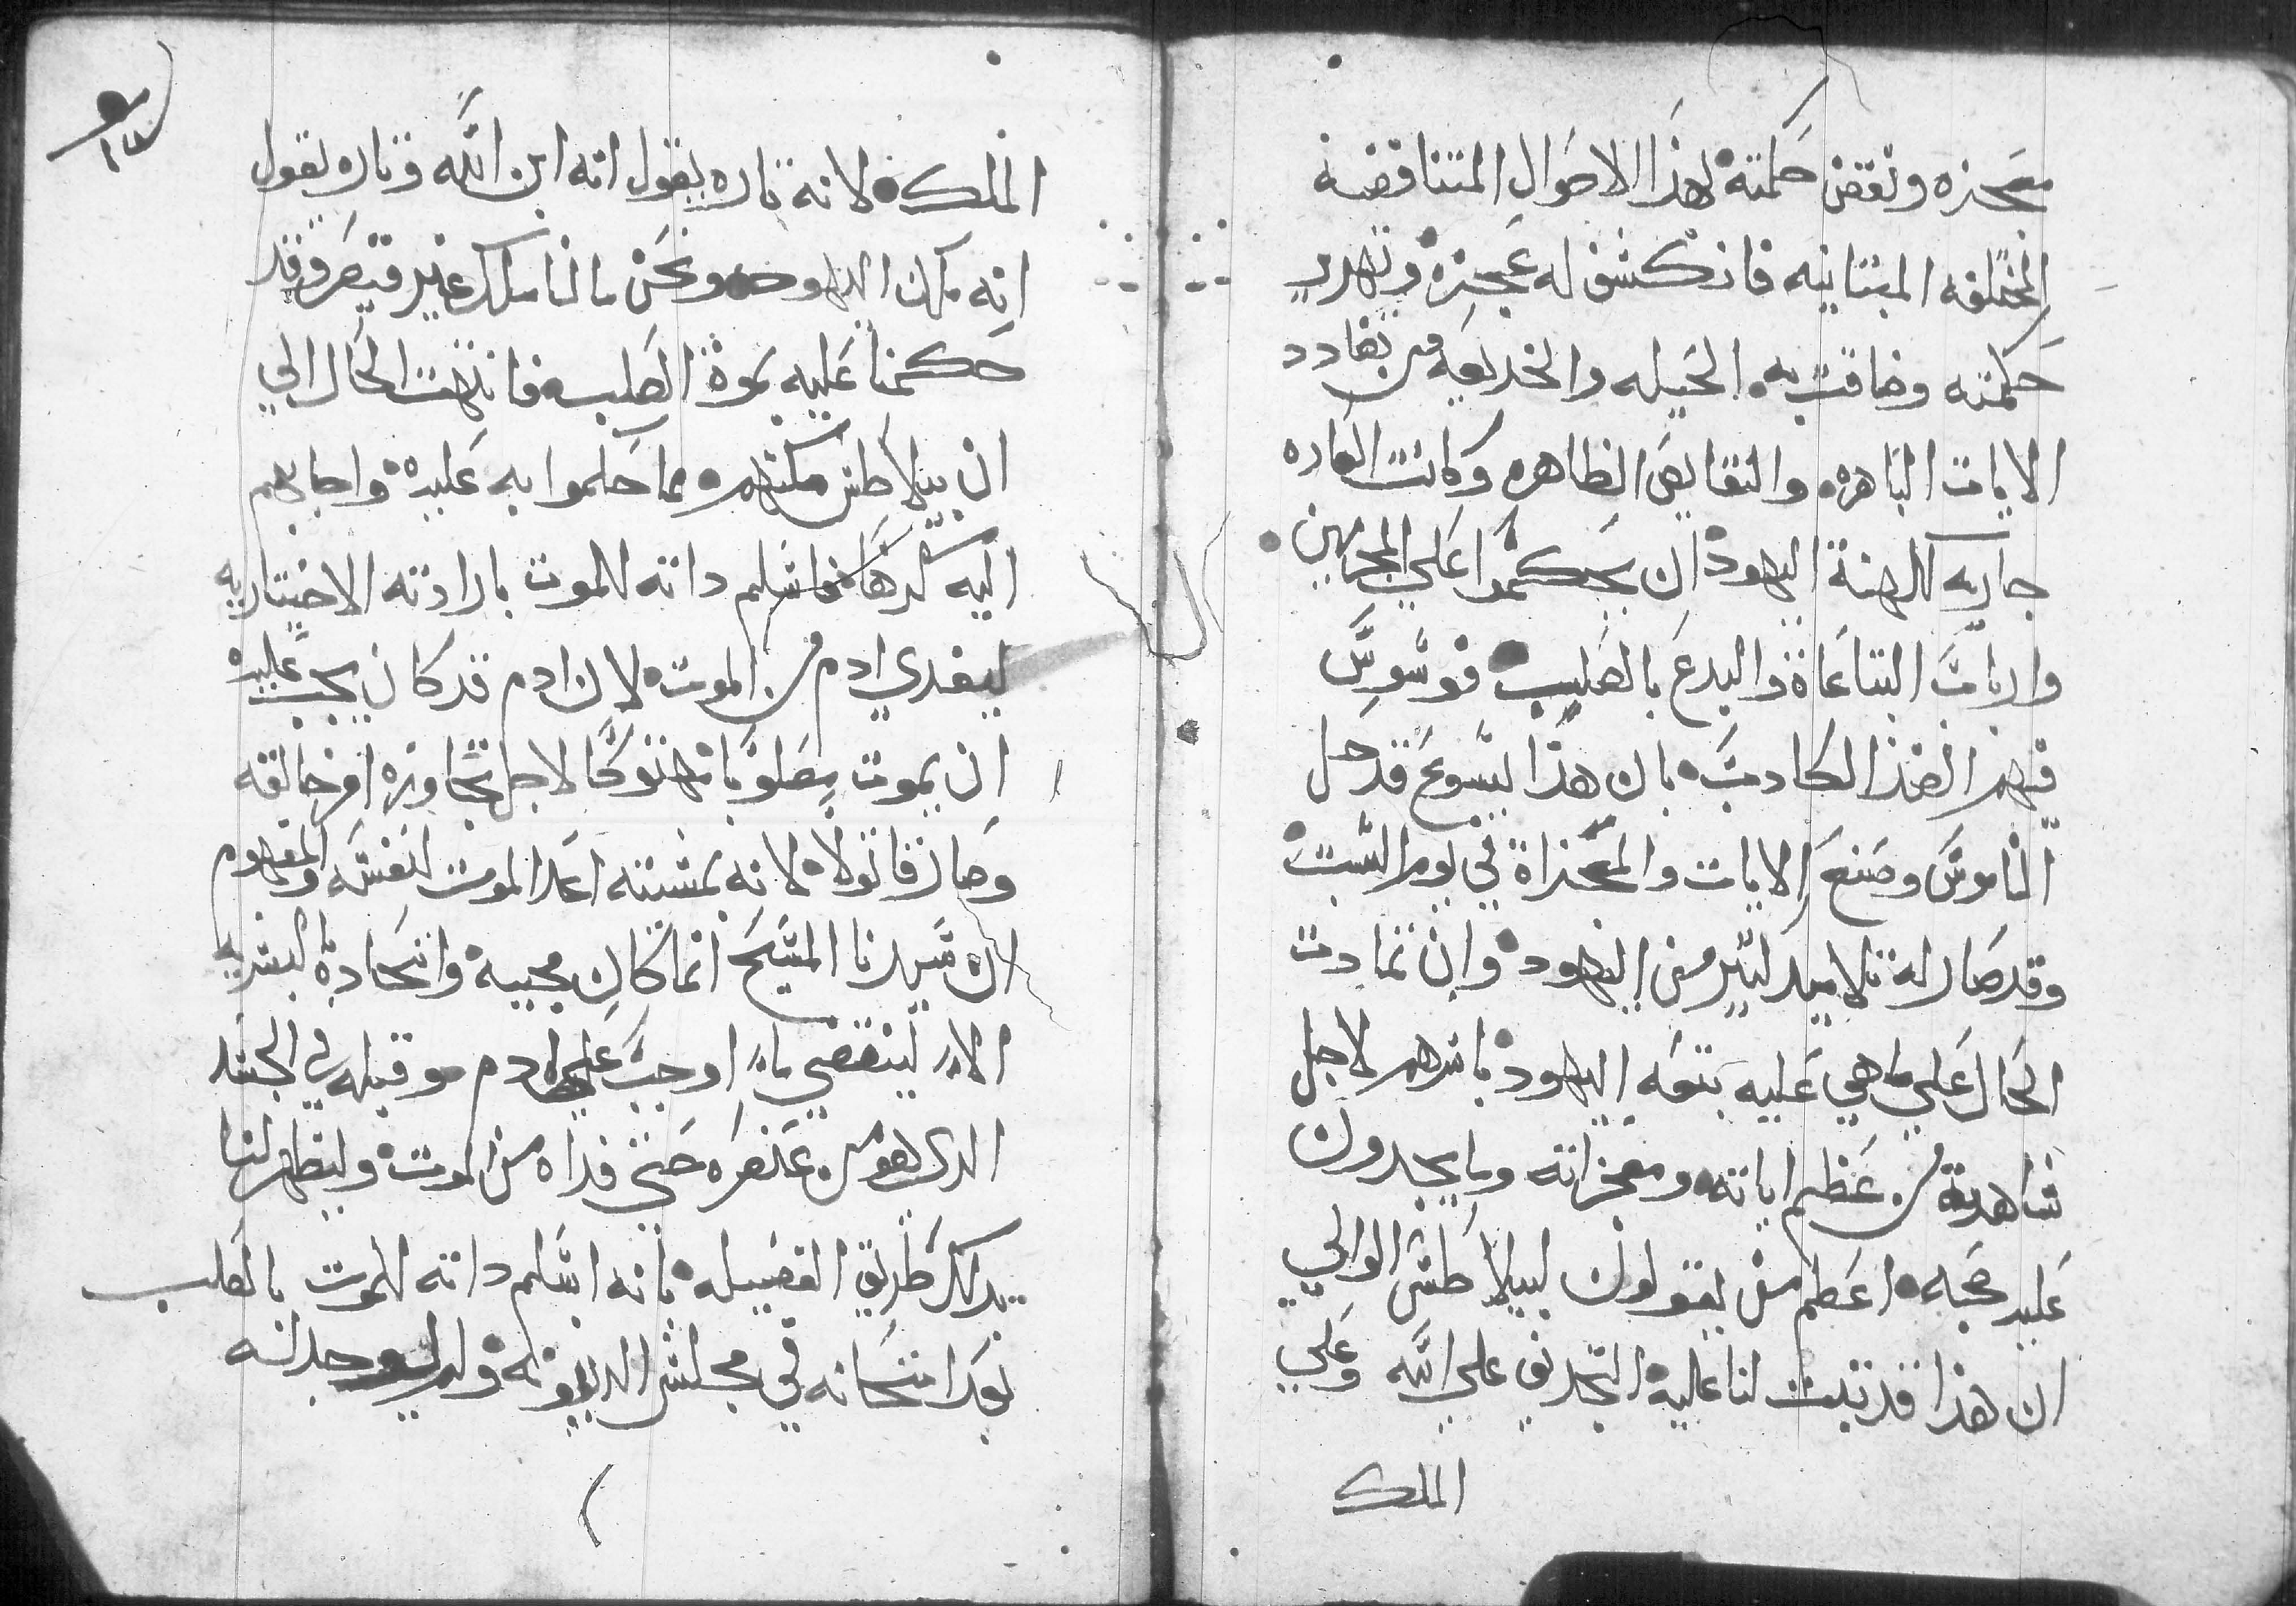 معجزه ونقض حكمته لهذا الاحوال المتناقضة
المختلفه المتباينه فانكشف له عجزه وتهدير
حكمته وضاقت به الحيله والخديعه من تعادد
الايات الباهره والنقايص الظاهره وكانت العاده
جاريه لكهنة اليهود ان يحكموا علي المجرمين
وارباب الشناعاة والبدع بالصليب فوسوس
فيهم الضد الكادب بان هذا ليسوع قد حل
الناموس وصنع الايات والمعجزاة في يوم السبت
وقد صار له تلاميد كتير من اليهود وان تمادت
الحال علي ما هي عليه تبعه اليهود باسرهم لاجل
شاهدة من عظم اياته ومعجزاته وما يجدون
عليه حجه اعظم من يقولون لبيلاطس الوالي
ان هذا قد تبت لنا عليه التجديف علي الله وعلي
الملك
الملك لانه تاره يقول انه ابن الله وتاره يقول
انه ملك اليهود ونحن ما لنا ملك غير قيصر وقد
حكمنا عليه بموة الصليب فانتهت الحال الي
ان بيلاطس مكنهم مما حكموا به عليه واجابهم
اليه كرها فاسلم داته للموت بارادته الاختياريه
ليفدي ادم من الموت لان ادم قد كان يجب عليه
ان يموت مصلوبا مهتوكا لاجل تجاوزه امر خالقه
وصار قاتولاه لانه بمشيته اعد الموت لنفسه والمفهوم
ان سيدنا المسيح انما كان مجييه واتحاده بالبشريه
الا لينقضي ما اوجب علي ادم وقبله في الجسد
الدي هو من عنصره حتي فداه من الموت وليظهر لنا
بدلك طريق الفضيله بانه اسلم داته للموت بالصلب
بعد امتحانه في مجلس الدينونه ولم يوجد له